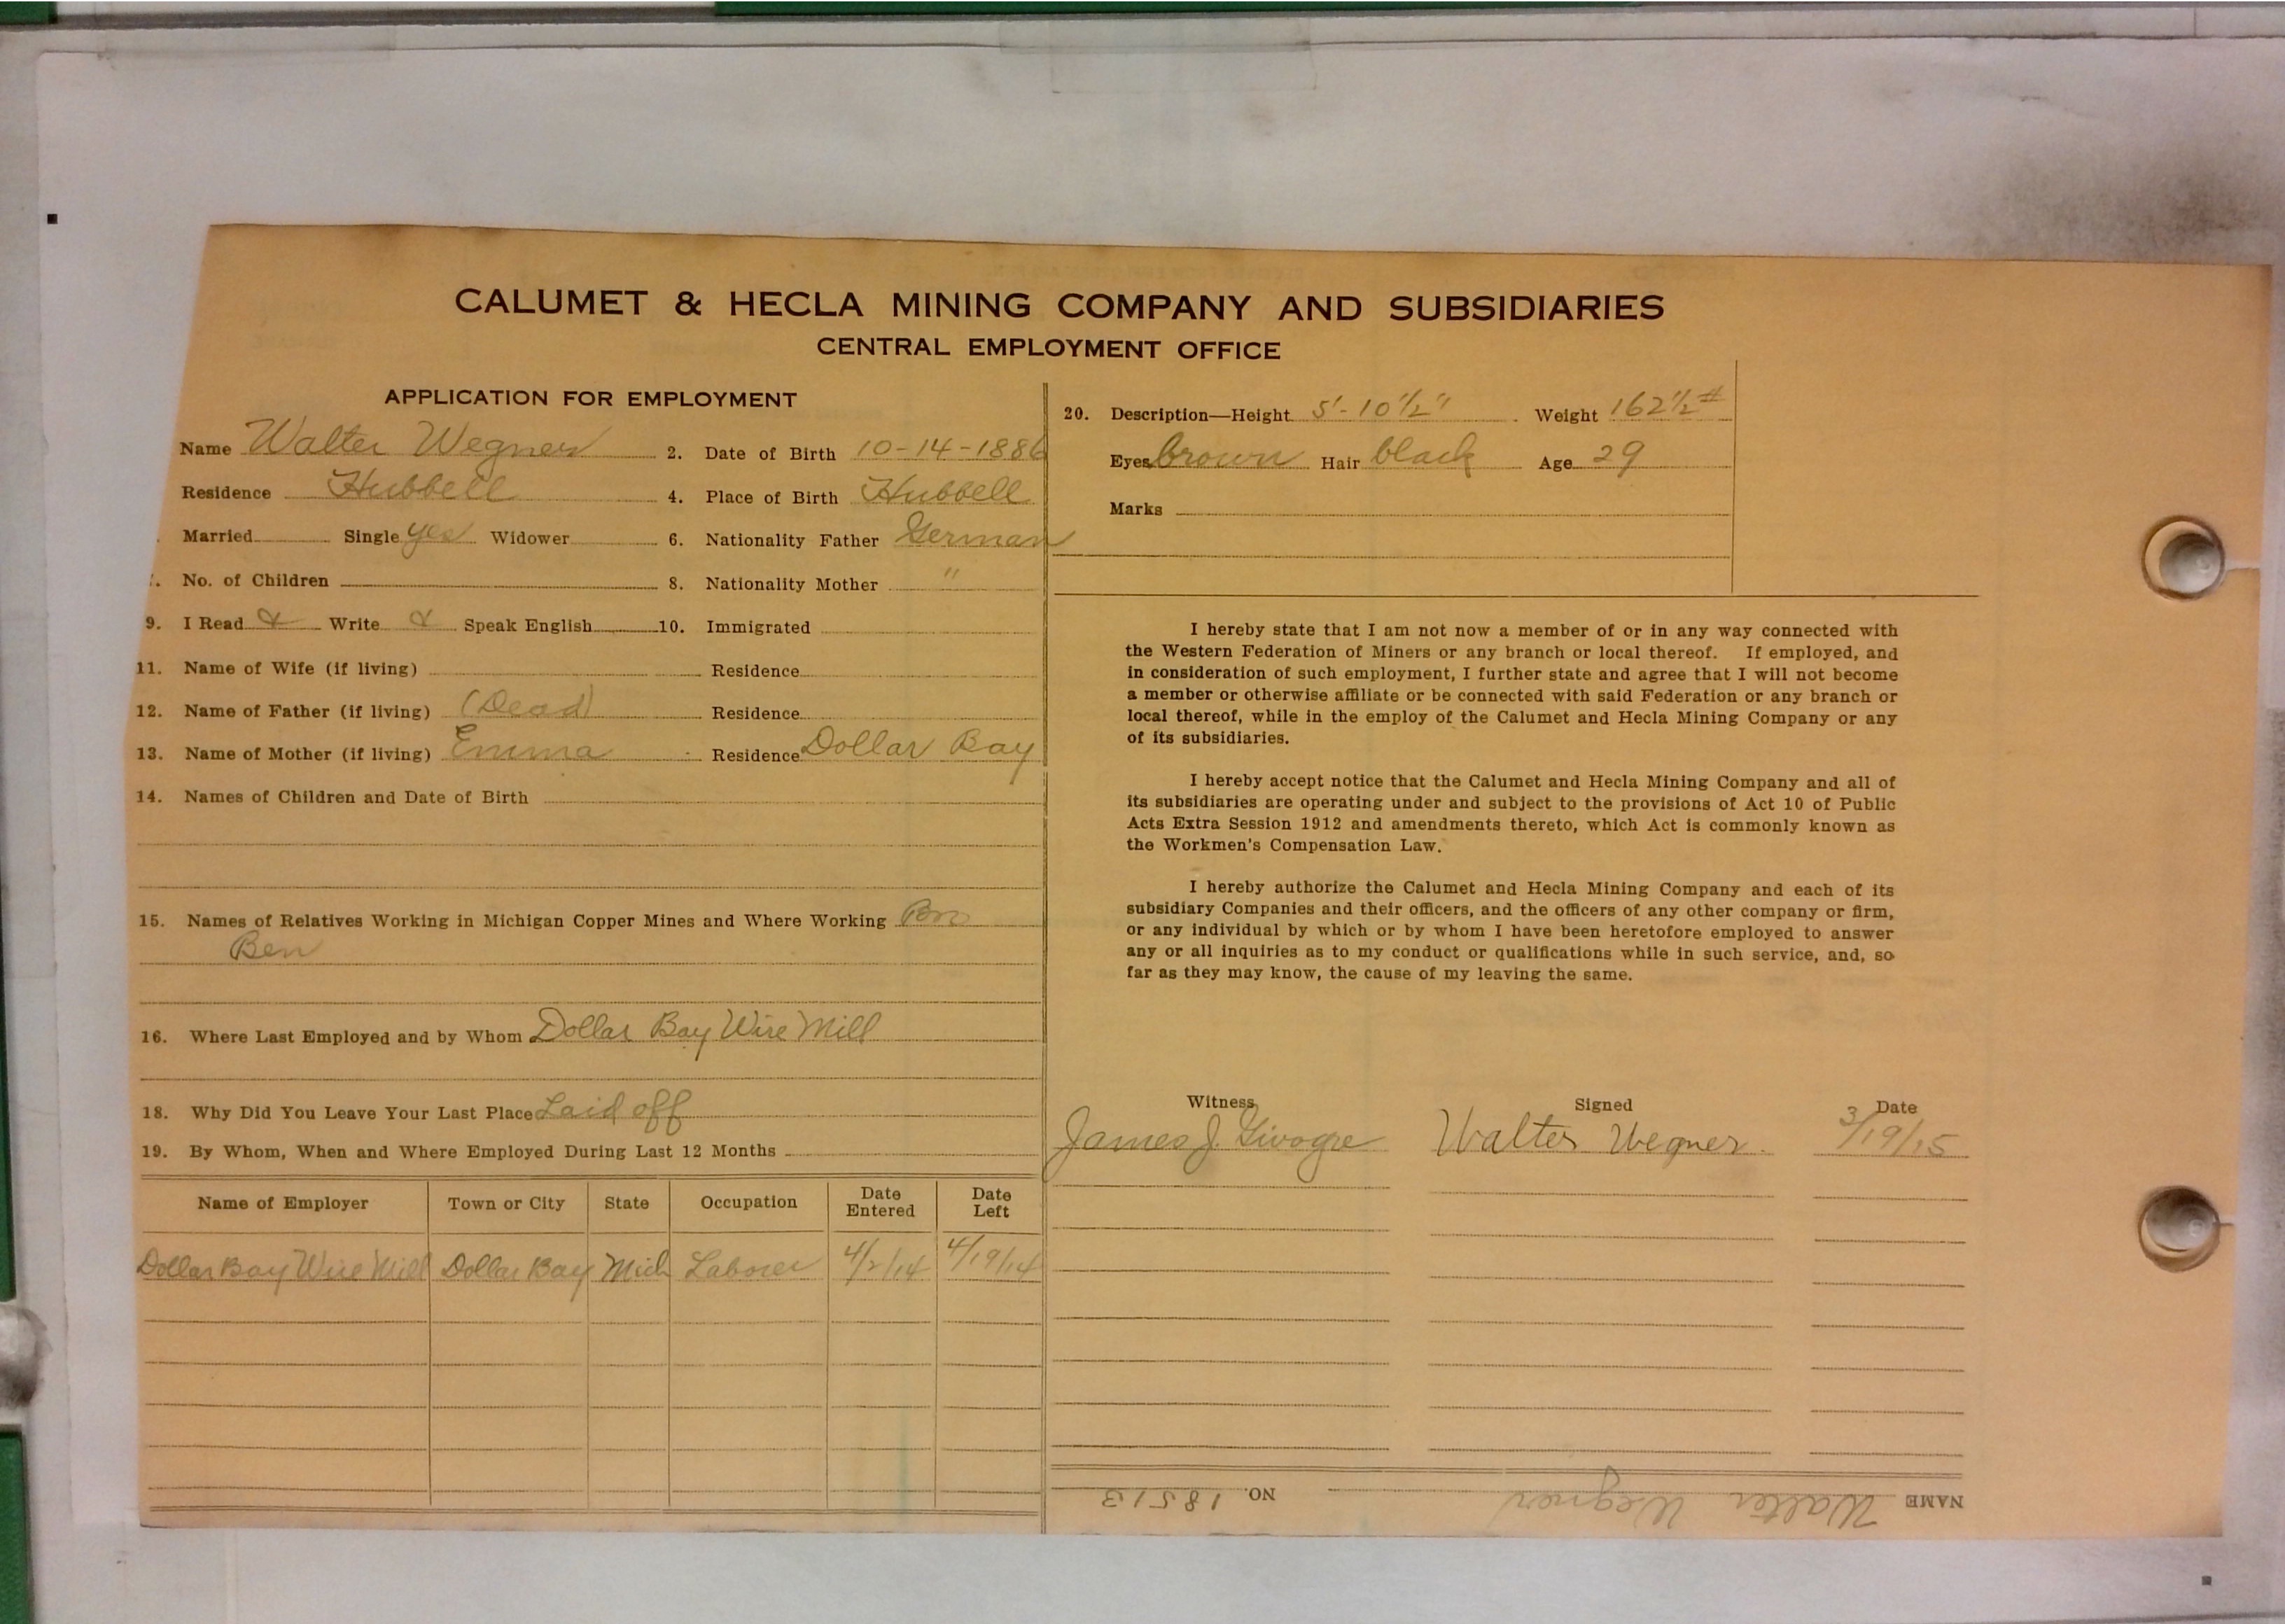 CALUMET & HECLA MINING COMPANY AND SUBSIDIARIES
CENTRAL EMPLOYMENT OFFICE
APPLICATION FOR EMPLOYMENT
Name Walter Wegner 2. Date of Birth 10-14-1886
Residence Hubbell 4. Place of Birth Hubbell
Married Single yes Widower 6. Nationality Father German
No. of Children 8. Nationality Mother "
9. I Read & Write & Speak English 10. Immigrated
11. Name of Wife (if living) Residence
12. Name of Father (if living) (Dead) Residence
13. Name of Mother (if living) Emma Residence Dollar Bay
14. Names of Children and Date of Birth
15. Names of Relatives Working in Michigan Copper Mines and Where Working Bro
Ben
16. Where Last Employed and by Whom Dollar Bay Wire Mill
18. Why Did You Leave Your Last Place Laid off
19. By Whom, When and Where Employed During Last 12 Months
Name of Employer Town or City State Occupation Date Entered Date Left
Dollar Bay Wire Mill Dollar Bay Mich Laborer 4/2/14 4/19/14
20. Description—Height 5'-10 1/2" Weight 162 1/2 #
Eyes brown Hair black Age 29
Marks
I hereby state that I am not now a member of or in any way connected with
the Western Federation of Miners or any branch or local thereof. If employed, and
in consideration of such employment, I further state and agree that I will not become
a member or otherwise affiliate or be connected with said Federation or any branch or
local thereof, while in the employ of the Calumet and Hecla Mining Company or any
of its subsidiaries.
I hereby accept notice that the Calumet and Hecla Mining Company and all of
its subsidiaries are operating under and subject to the provisions of Act 10 of Public
Acts Extra Session 1912 and amendments thereto, which Act is commonly known as
the Workmen's Compensation Law.
I hereby authorize the Calumet and Hecla Mining Company and each of its
subsidiary Companies and their officers, and the officers of any other company or firm,
or any individual by which or by whom I have been heretofore employed to answer
any or all inquiries as to my conduct or qualifications while in such service, and, so
far as they may know, the cause of my leaving the same.
Witness Signed Date
James J. Walter Wegner. 3/19/15
NAME Walter Wegner NO. 18513